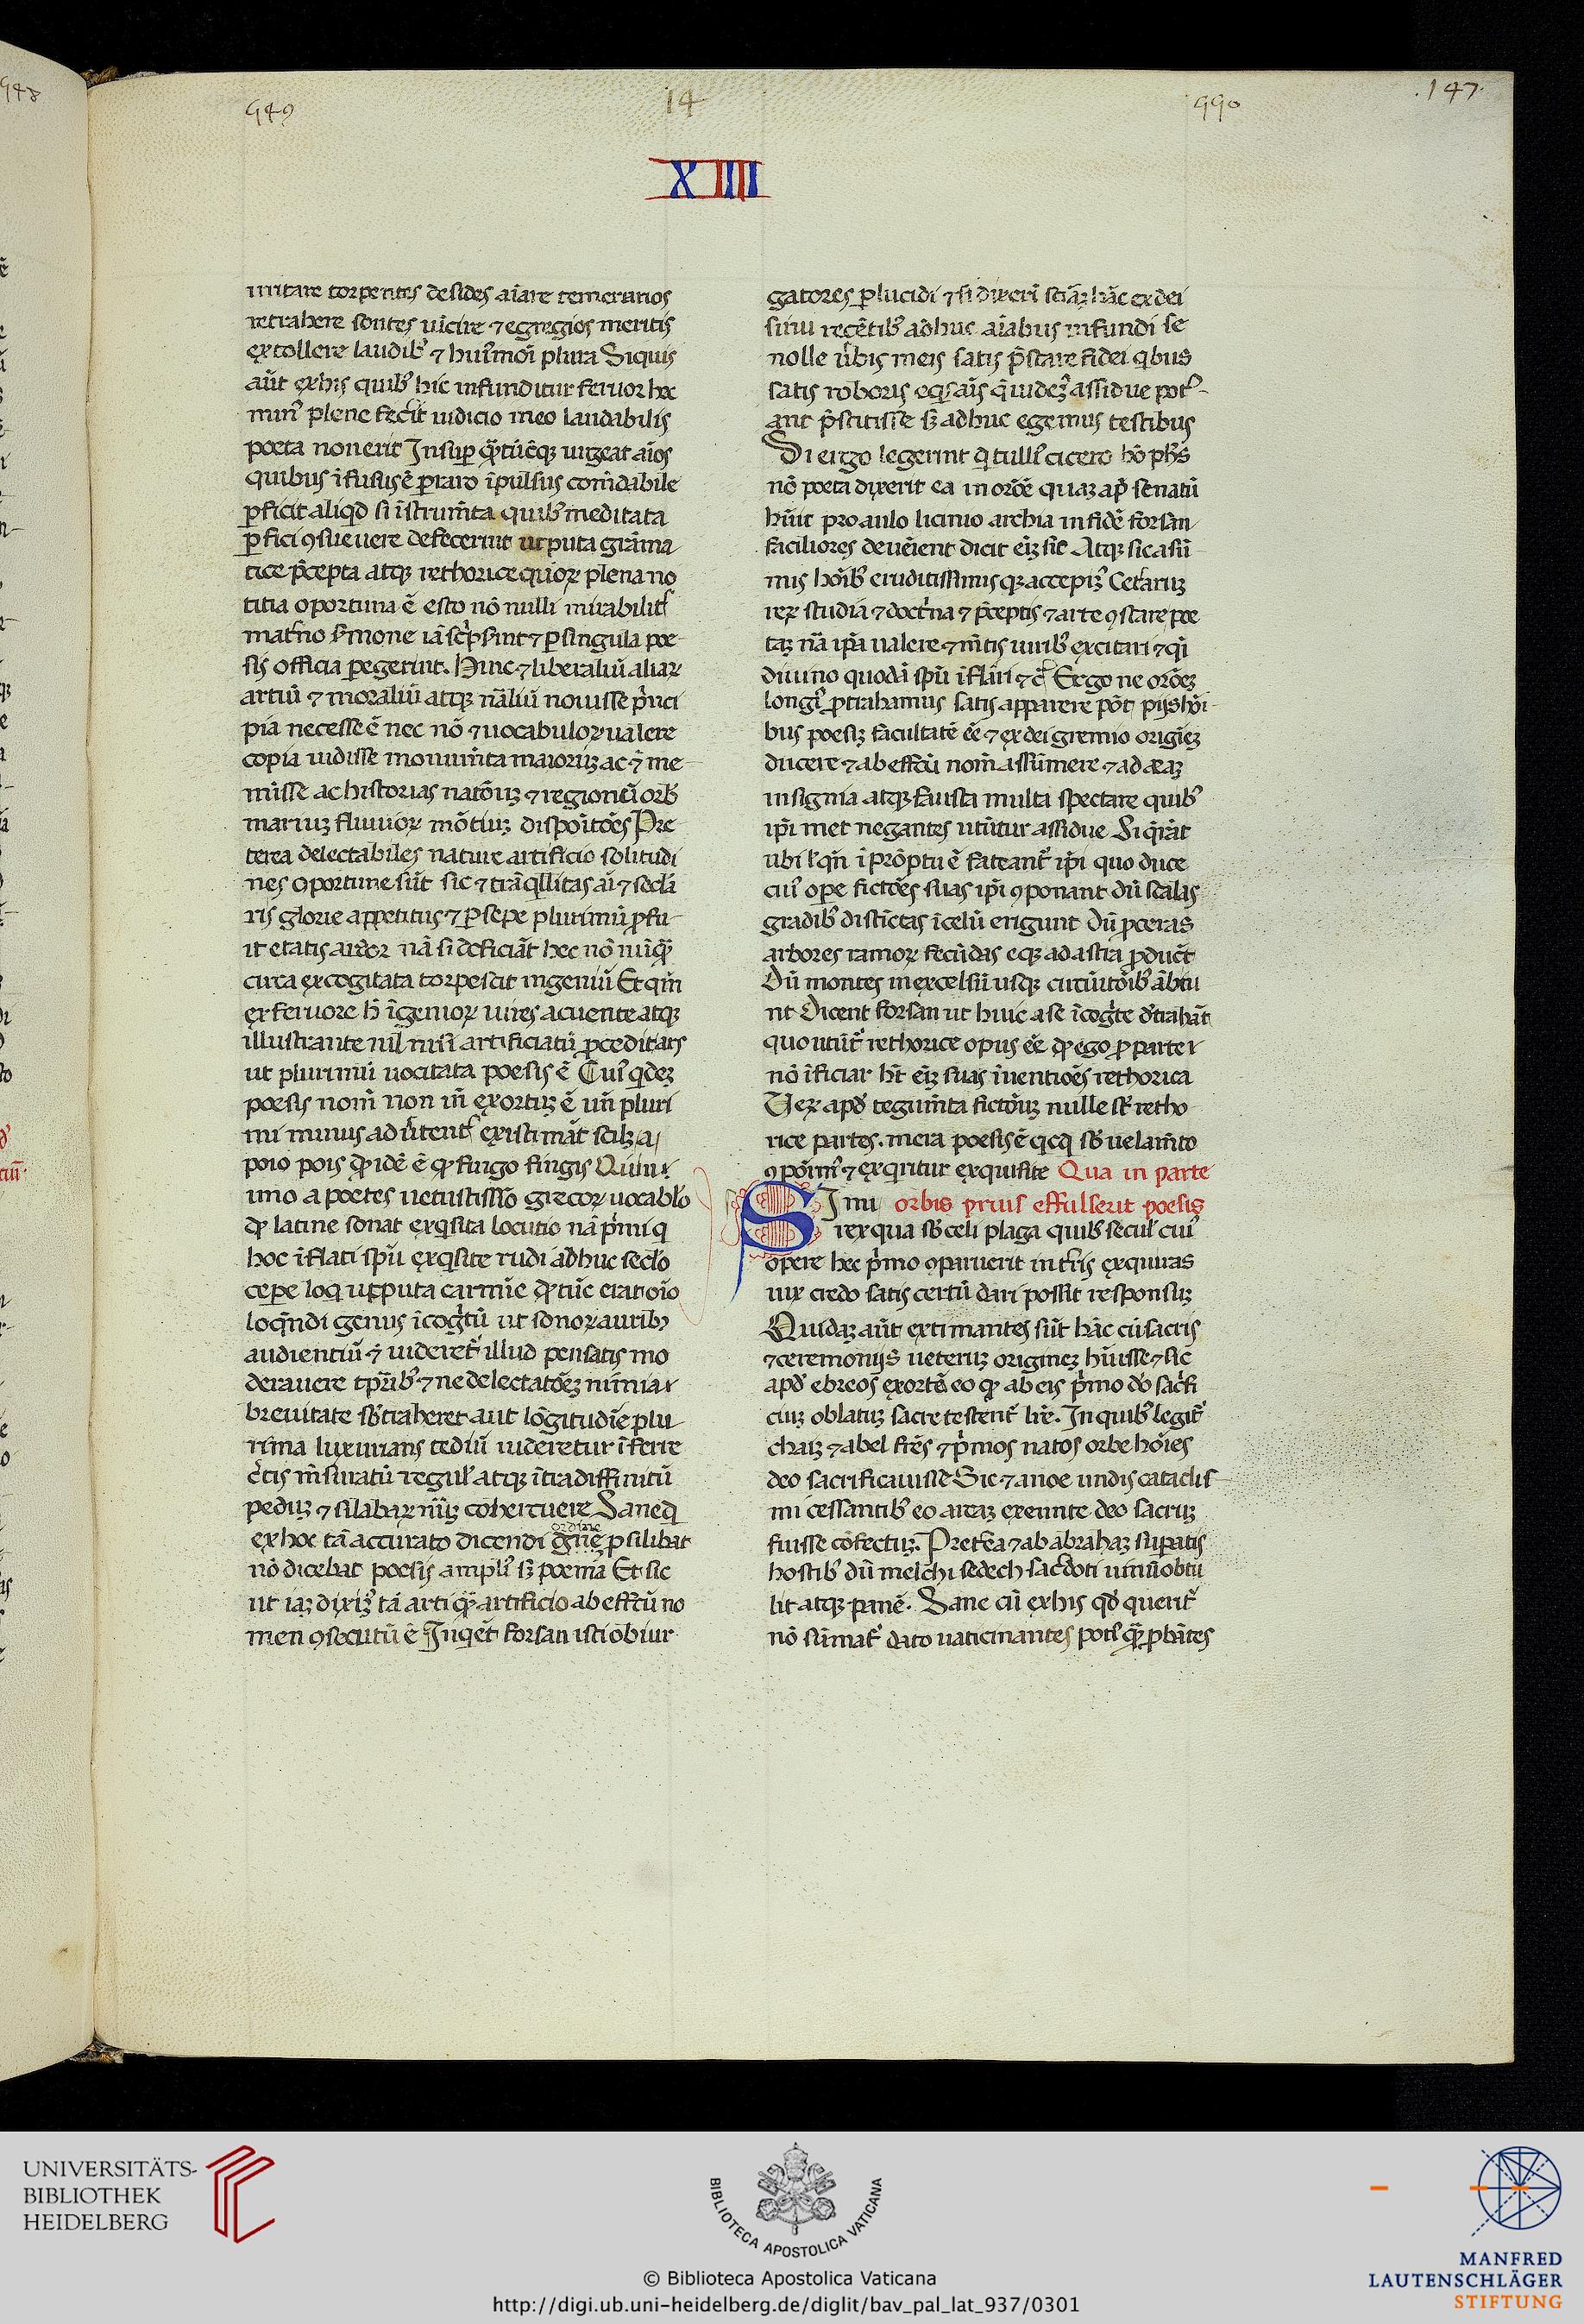 948
949
14
990
.147.
XIIII
irritare torpentes desides aĩare temerarios
retrahere sontes uĩcire ⁊ egregios meritis
extollere laudibꝰ ⁊ huiꝰmõi plura Siquis
aũt exhis quibꝰ hic infunditur feruor hec
minꝰ plene fecerit iudicio meo laudabilis
poeta non erit Insuꝑ ꝙ̃tũcꝙ urgeat aĩos
quibus ĩfusus ẽ ꝑraro ĩpulsus com̃dabile
ꝑficit aliqd si ĩstrum̃ta quibꝰ meditata
ꝑfici ꝯsueuere defecerint utputa grãma
tice p̃cepta atqꝫ rethorice quoꝝ plena no
titia oportuna ẽ esto nõ nulli mirabilit̃
mat̃no s̃mone iã sc̃pserint ⁊ ꝑ singula poe
sis officia ꝑegerint. Hinc ⁊ liberaliũ aliaꝝ
artiũ ⁊ moraliũ atqꝫ nãliũ nouisse p̃nci
pia necesse ẽ nec nõ ⁊ uocabuloꝝ ualere
copia uidisse monum̃ta maioruꝫ ac ⁊ me
misse ac historias natõuꝫ ⁊ regionũ orbꝰ
mariuꝫ fluuioꝝ mõtiuꝫ dispõitões Pre
terea delectabiles nature artificio solitudi
nes oportune sũt sic ⁊ trãqllitas aĩ ⁊ seclã
ris glorie appetitus ⁊ ꝑsepe plurimũ ꝓfu
it etatis ardor nã si deficiãt hec nõ nũqꝫ̃
circa excogitata torpescit ingeniũ Et qm̃
ex feruore h̃ ĩgenioꝝ uires acuente atqꝫ
illustrante nil̃ nisi artificiatũ ꝓcedit ars
ut plurimũ uocitata poesis ẽ Cuiꝰ qdeꝫ
poesis nom̃ non in̄ exortuꝫ ẽ un̄ pluri
mi minus aduertent̃ existimãt scilꝫ a
poio pois ꝙ idẽ ẽ ꝙ fingo fingis Quini
imo a poetes uetustissĩo grecoꝝ uocablo
ꝙ latine sonat exqsita locutio nã p̃mi q
hoc ĩflati spũ exqsite rudi adhuc seclo
cepe loq utputa carmĩe ꝙ tũc etati oĩo
loquẽdi genus ĩcogtũ ut sonoꝝ auribꝫ
audientiũ ⁊ uideret̃ illud pensatis mo
derauere tp̃ribꝰ ⁊ ne delectatõeꝫ nimia
breuitate sb̃traheret aut lõgitudĩe plu
rima luxurians tediũ uideretur ĩferre
c̃tis m̃suratũ regulꝰ atqꝫ ĩtra diffinitũ
peduꝫ ⁊ silabaꝝ nũuꝫ cohercuere Sane q
ordine
exhoc tã accurato dicendi gñe ꝓsilibat
nõ dicebat poesis ampliꝰ sꝫ poema Et sic
ut iaꝫ dixiꝫ tã arti ꝙ̃ artificio ab effc̃u no
men ꝯsecutũ ẽ Inqẽt forsan isti obiur
gatores ꝑlucidi ⁊ si dixerĩ sciãꝫ hãc ex dei
sinu recẽtibꝰ adhuc aĩabus infundi se
nolle ũbis meis satis p̃stare fidei qbus
satis roboris eqs aĩs q̃ uidez̃ assidue pot̃
ant p̃stitisse sꝫ adhuc egemus testibus
Di ergo legerint q tulliꝰ cicero hõ ph̃s
nõ poeta dixerit ea in orõe quaꝫ apd̃ senatũ
hũit pro aulo licinio archia in fidẽ forsan
faciliores deueĩent dicit eĩ sic̃ Atqꝫ sic asũ
mus hoĩbꝰ eruditissimis qꝫ accepiꝫ Cet̃aruꝫ
reꝝ studia ⁊ doct̃na ⁊ p̃ceptis ⁊ arte ꝯstare poe
taꝫ nã ip̃a ualere ⁊ m̃tis uiribꝰ excitari ⁊ q̃i
diuino quodã spũ ĩflãri ⁊c̃ Ergo ne orõeꝫ
longiꝰ ꝓtrahamus satis apparere põt pijs hoĩ
bus poesiꝫ facultatẽ ee̅ ⁊ ex dei gremio origĩeꝫ
ducere ⁊ ab effc̃u nom̃ assũmere ⁊ ad eaꝫ
insignia atqꝫ fausta multa spectare quibꝰ
ip̃i met negantes utũtur assidue Si q̃rãt
ubi lqñ ĩ prõptu ẽ fateant̃ ip̃i quo duce
cuiꝰ ope fictões suas ip̃i ꝯponant dũ scalas
gradibꝰ distĩctas ĩ celũ erigunt dũ ꝓceras
arbores ramoꝝ fecũdas eqꝫ ad astra ꝓduct̃
dũ montes in excelsũ usqꝫ circũitõibꝰ ãbiu
nt Dicent forsan ut huic a se ĩcogte d̃trahãt
quo utũt̃ rethorice opus ee̅ ꝙ ego ꝓ parte
nõ ĩficiar hꝫ eĩ suas ĩuentiões rethorica
Veꝝ apd̃ tegum̃ta fictõuꝫ nulle st̃ retho
rice partes. mera poesis ẽ qcqd sb̃ uelam̃to
ꝯpõim̃ ⁊ exqritur exquisite Qua in parte
orbis prius effulserit poesis
SInu
ir ex qua sb̃ celi plaga quibꝰ seculꝰ cuiꝰ
opere hec p̃mo ꝯparuerit in t̃ris exquiras
uix credo satis certũ dari possit responsuꝫ
Quidaꝫ aũt extimantes sũt hãc cũ sacris
⁊ ceremonijs ueteruꝫ origineꝫ hũisse ⁊ sic̃
apd̃ ebreos exortẽ eo ꝙ ab eis p̃mo do̅ sac̃fi
ciuꝫ oblatuꝫ sacre testent̃ lr̃e. In quibꝰ legit̃
chaiꝫ ⁊ abel fr̃es ⁊ p̃mos natos orbe hoĩes
deo sacrificauisse Sic ⁊ a noe undis cataclis
mi cessantibꝰ eo arcaꝫ exeunte deo sacruꝫ
fuisse cõfectuꝫ. Preterea ⁊ ab abrahaꝫ suꝑatis
hostibꝰ dũ melchisedech sac̃doti uinũ obtu
lit atqꝫ panẽ. Sane cũ exhis qd̃ querit̃
nõ sumat̃ dato uaticinantes potiꝰ ꝙ̃ ꝓbãtes
UNIVERSITÄTS-
BIBLIOTHEK
HEIDELBERG
BIBLIOTECA APOSTOLICA VATICANA
© Biblioteca Apostolica Vaticana
http://digi.ub.uni-heidelberg.de/diglit/bav_pal_lat_937/0301
MANFRED
LAUTENSCHLÄGER
STIFTUNG